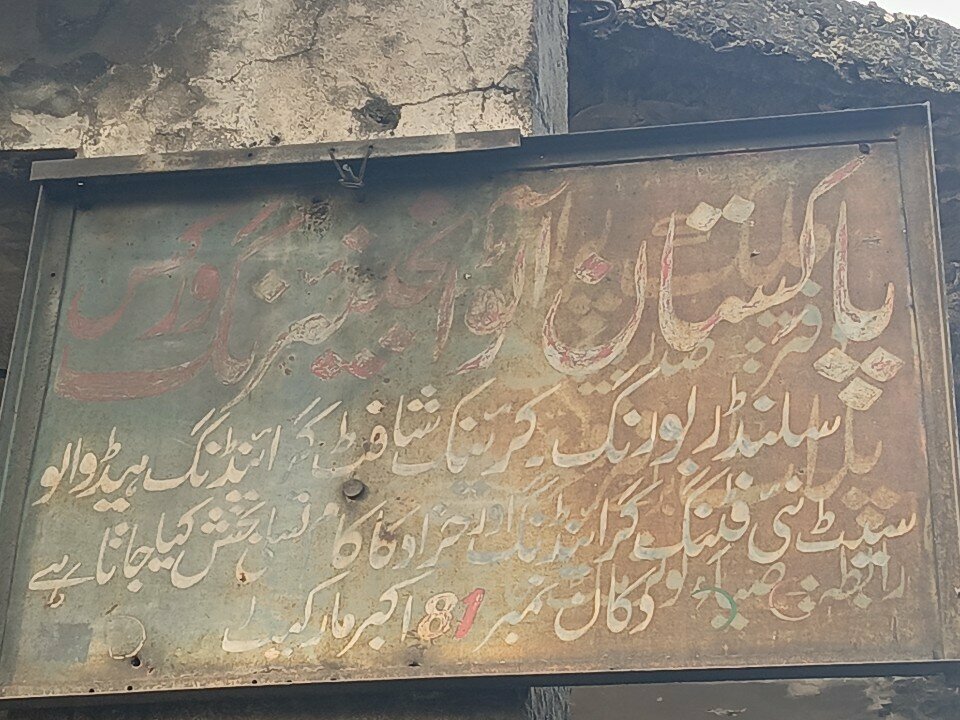 پاکستان آٹو انجینئرنگ ورکس
سلنڈر بورنگ۔ کرینک شافٹ گرائنڈنگ ہیڈ والو
سیٹ نئی فٹنگ گرائنڈنگ اور خراد کا کام تسلی بخش کیا جاتا ہے
رابطہ: دکان نمبر 81 اکبر مارکیٹ